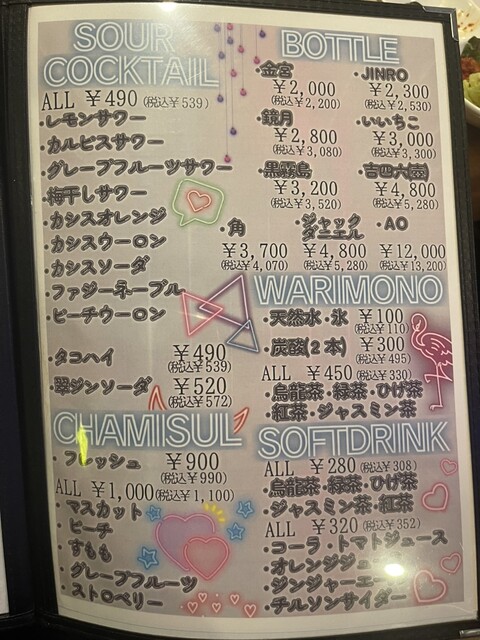 SOUR
COCKTAIL
ALL ￥490 (税込￥539)
・レモンサワー
・カルピスサワー
・グレープフルーツサワー
・梅干しサワー
・カシスオレンジ
・カシスウーロン
・カシスソーダ
・ファジーネーブル
・ピーチウーロン
・タコハイ ￥490
(税込￥539)
・翠ジンソーダ ￥520
(税込￥572)
CHAMISUL
・フレッシュ ￥900
(税込￥990)
ALL ￥1,000(税込￥1,100)
・マスカット
・ピーチ
・すもも
・グレープフルーツ
・ストロベリー
BOTTLE
・金宮 ・JINRO
￥2,000 ￥2,300
(税込￥2,200) (税込￥2,530)
・鏡月 ・いいちこ
￥2,800 ￥3,000
(税込￥3,080) (税込￥3,300)
・黒霧島 ・吉四六
￥3,200 ￥4,800
(税込￥3,520) (税込￥5,280)
・角 ・ジャック ・AO
ダニエル
￥3,700 ￥4,800 ￥12,000
(税込￥4,070) (税込￥5,280) (税込￥13,200)
WARIMONO
・天然水・氷 ￥100
(税込￥110)
・炭酸(2本) ￥300
(税込￥495)
ALL ￥450 (税込￥330)
・烏龍茶・緑茶・ひげ茶
・紅茶・ジャスミン茶
SOFTDRINK
ALL ￥280 (税込￥308)
・烏龍茶・緑茶・ひげ茶
・ジャスミン茶・紅茶
ALL ￥320 (税込￥352)
・コーラ・トマトジュース
・オレンジジュ
・ジンジャーエー
・チルソンサイダー